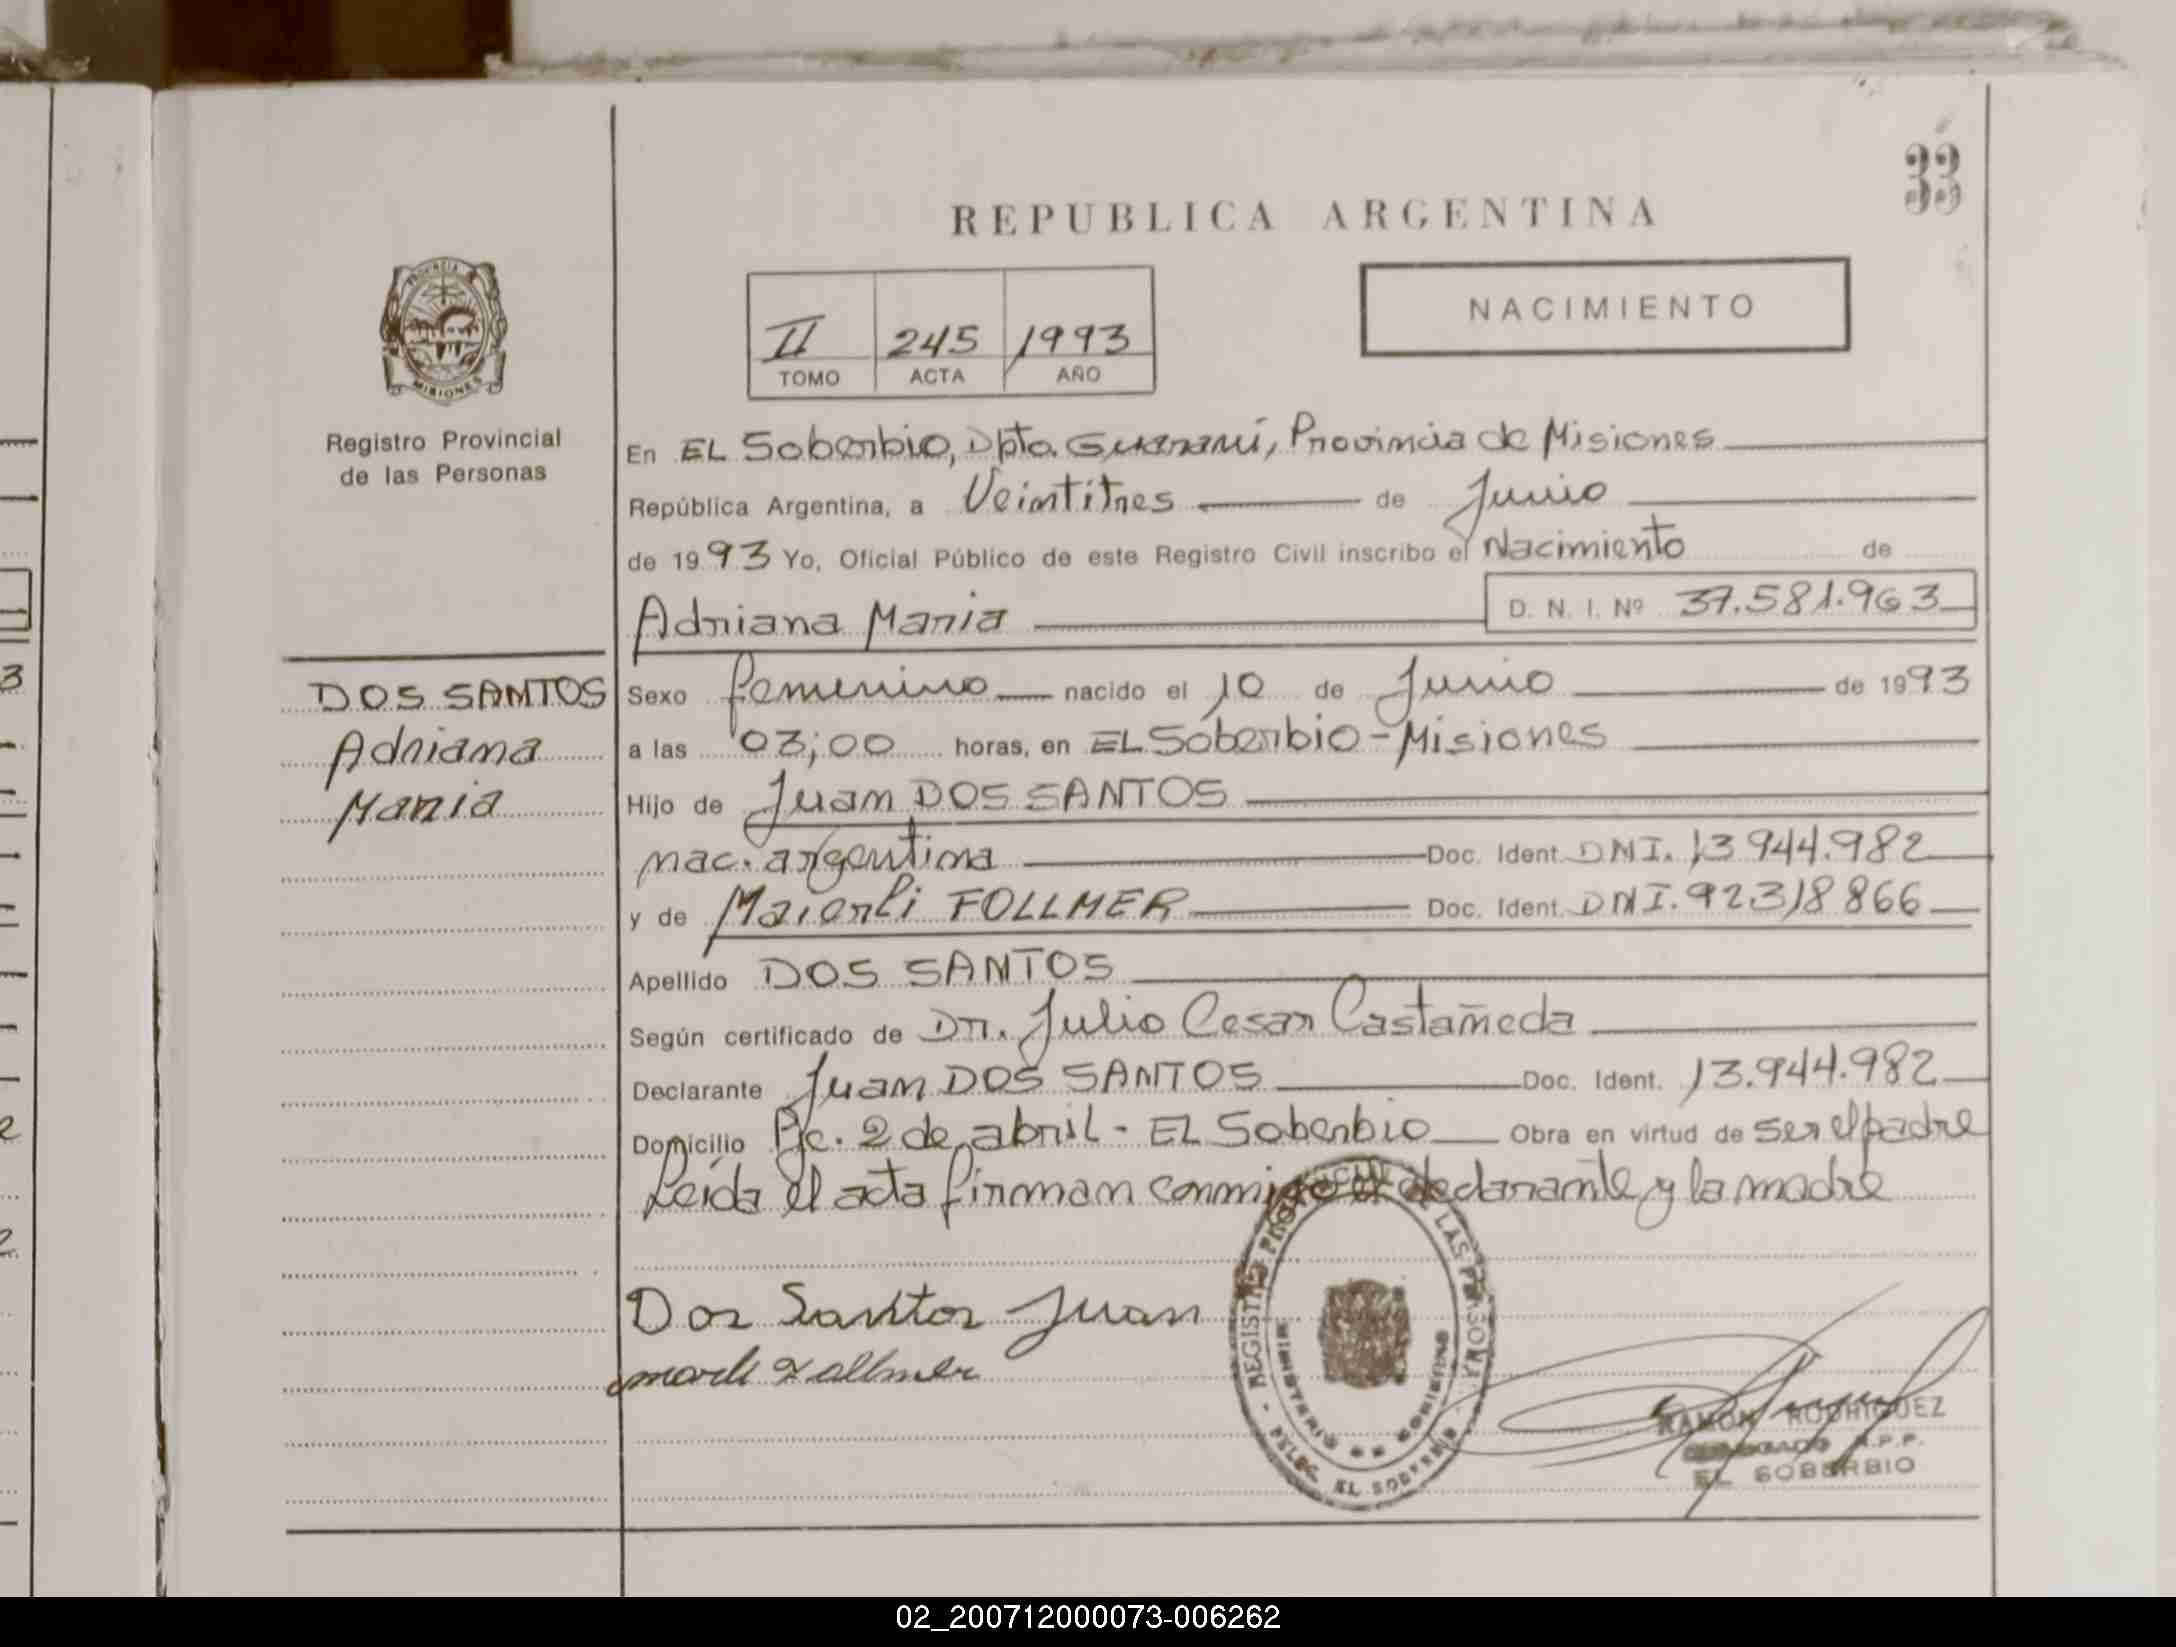 33
REPUBLICA ARGENTINA
PROVINCIA DE
MISIONES
II 245 1993
TOMO ACTA AÑO
NACIMIENTO
Registro Provincial
de las Personas
DOS SANTOS
Adriana
Maria
En EL Soberbio, Dpto. Guarani, Provincia de Misiones
República Argentina, a Veintitres de Junio
de 1993 Yo, Oficial Público de este Registro Civil inscribo el Nacimiento de
Adriana Maria D. N. I. Nº 37.581.963
Sexo femenino nacido el 10 de Junio de 1993
a las 03;00 horas, en EL Soberbio - Misiones
Hijo de Juan DOS SANTOS
nac. argentina Doc. Ident. DNI. 13.944.982
y de Maierli FOLLMER Doc. Ident. DNI. 92.318866
Apellido DOS SANTOS
Según certificado de Dr. Julio Cesar Castañeda
Declarante Juan DOS SANTOS Doc. Ident. 13.944.982
Domicilio Pje. 2 de abril - EL Soberbio Obra en virtud de ser el padre
Leida el acta firman conmigo el declarante y la madre
Dos Santos Juan
REGISTRO PROVINCIAL DE LAS PERSONAS - DELEG. EL SOBERBIO
MINISTERIO DE GOBIERNO
RAMON RODRIGUEZ
DELEGADO R.P.P.
EL SOBERBIO
02_200712000073-006262